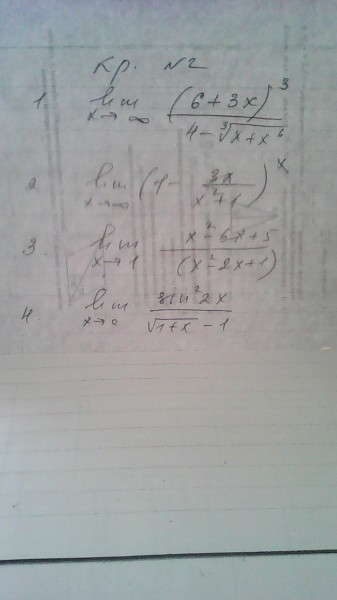 кр. №2
1. lim x→∞ (6+3x)^3 / (4-∛(x+x^6))
2. lim x→∞ (1- 3x/(x^2+1))^x
3. lim x→1 (x^2-6x+5) / (x^2-2x+1)
4. lim x→0 sin^2 2x / (√(1+x) -1)